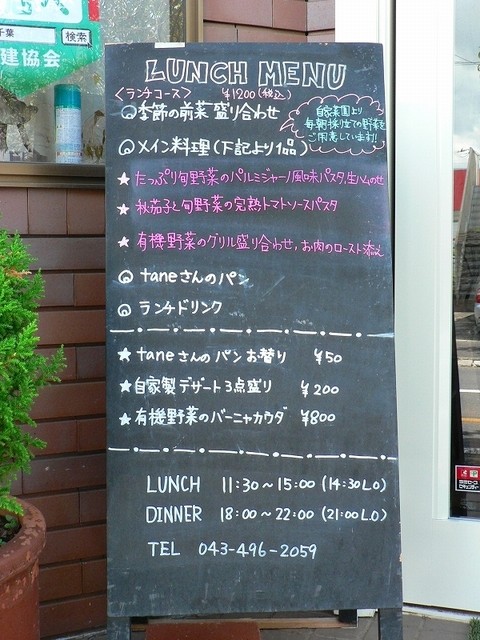 千葉
検索
建協会
LUNCH MENU
<ランチコース> ¥1200(税込)
◎季節の前菜盛り合わせ
自家菜園より
毎朝採りたての野菜を
ご用意しています!!
◎メイン料理(下記より1品)
★たっぷり旬野菜のパルミジャーノ風味パスタ,生ハムのせ
★秋茄子と旬野菜の完熟トマトソースパスタ
★有機野菜のグリル盛り合わせ,お肉のロースト添え
◎taneさんのパン
◎ランチドリンク
★taneさんのパンお替り ¥50
★自家製デザート3点盛り ¥200
★有機野菜のバーニャカウダ ¥800
LUNCH 11:30~15:00(14:30L.O)
DINNER 18:00~22:00(21:00L.O)
TEL 043-496-2059